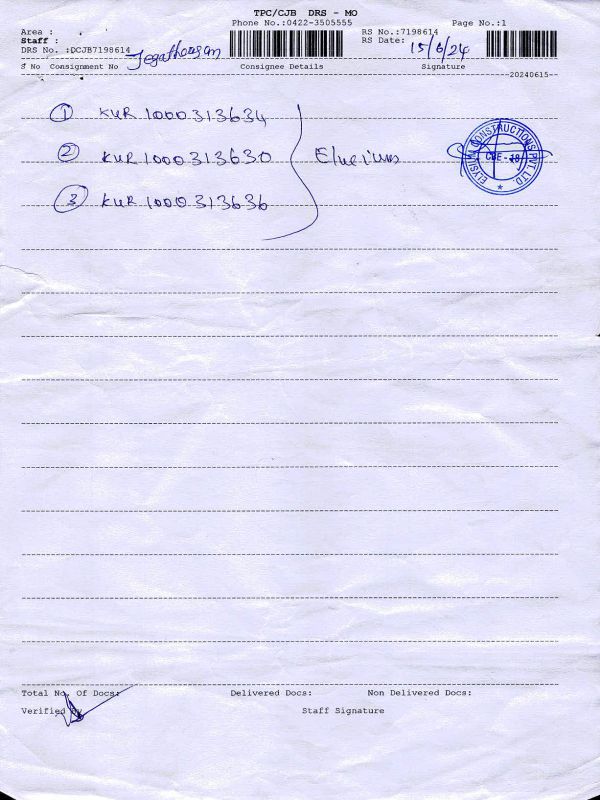 TPC/CJB DRS - MO
Phone No.:0422-3505555
Page No.:1
Area :
Staff :
DRS No. :DCJB7198614
RS No.:7198614
RS Date: 15/6/24
S No Consignment No Consignee Details Signature
--20240615--
① KUR 1000313634
② KUR 1000313630
③ KUR 1000313636
ELYSIUM CONSTRUCTIONS PVT LTD
CBE - 18
Total No. Of Docs: Delivered Docs: Non Delivered Docs:
Verified By Staff Signature